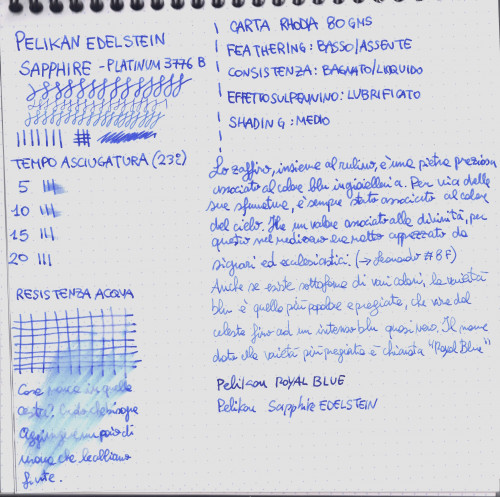 PELIKAN EDELSTEIN
SAPPHIRE - PLATINUM 3776 B
TEMPO ASCIUGATURA (23°)
5
10
15
20
RESISTENZA ACQUA
Cosa manca in quella
casetta?
Aggiungere un paio di
uova che le abbiamo
finite.
CARTA RHODIA 80 GMS
FEATHERING: BASSO/ASSENTE
CONSISTENZA: BAGNATO/LIQUIDO
EFFETTO SUL PENNINO: LUBRIFICATO
SHADING: MEDIO
Lo zaffiro, insieme al rubino, è una pietra preziosa
associata al colore blu in gioielleria. Per via delle
sue sfumature, è sempre stato associato al colore
del cielo. Ha un valore associato alle divinità, per
questo nel medioevo era molto apprezzato da
signori ed ecclesiastici. (→ Leonardo #8F)
Anche se esiste sottoforma di vari colori, la varietà
blu è quella più popolare e pregiata, che va dal
celeste fino ad un intenso blu quasi nero. Il nome
dato alla varietà più pregiata è chiamata "Royal Blue"
Pelikan ROYAL BLUE
Pelikan Sapphire EDELSTEIN